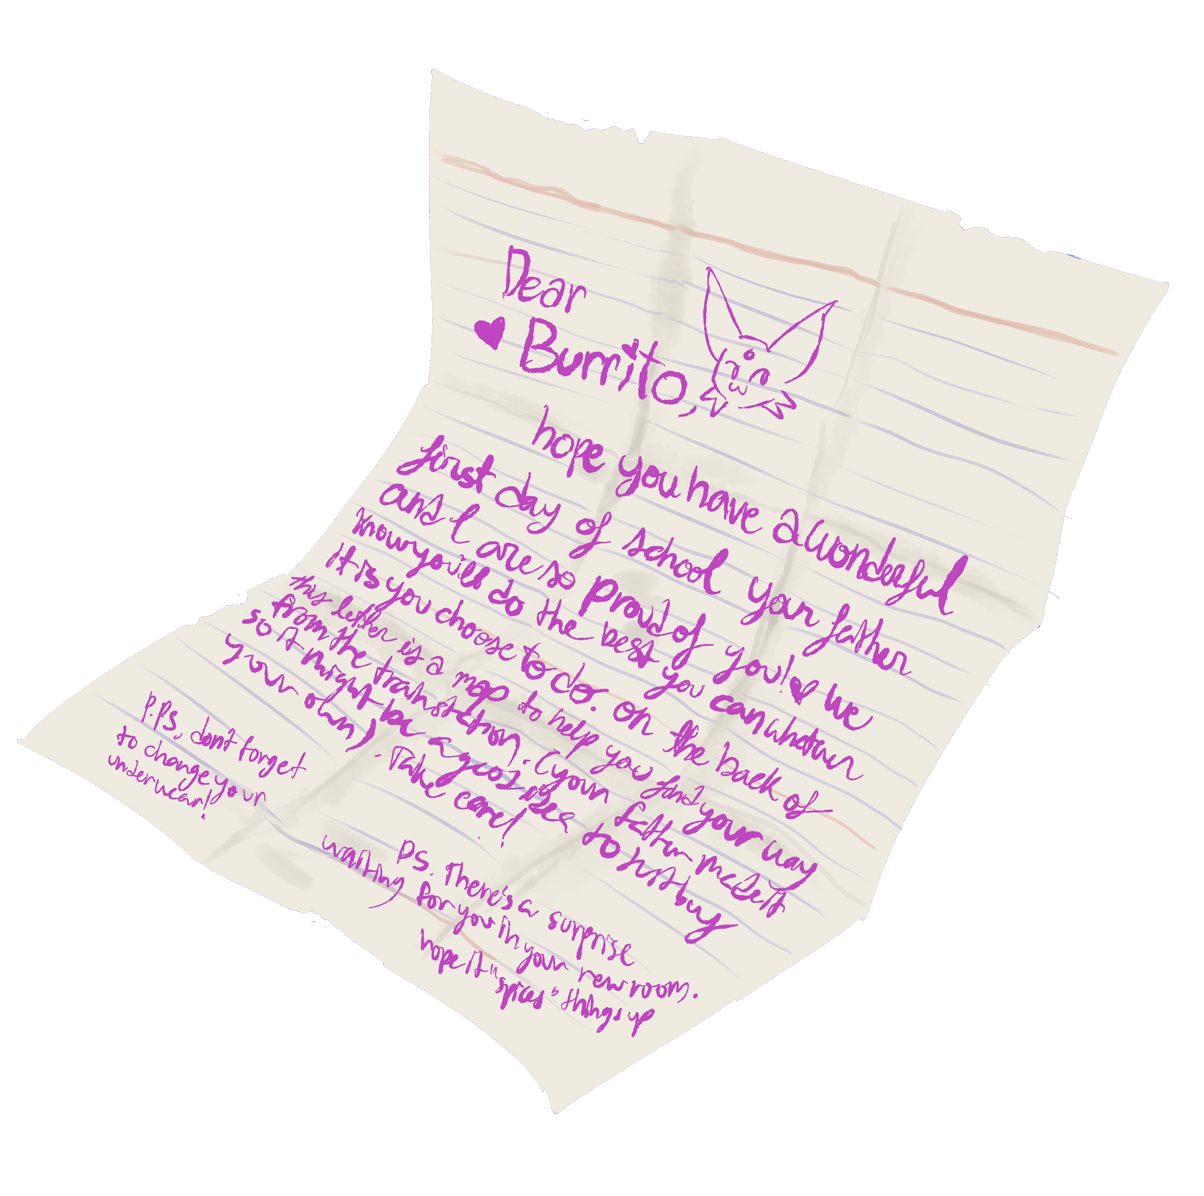 Dear
Burrito,
hope you have a wonderful
first day of school your father
and I are so proud of you! we
know you'll do the best you can whatever
it is you choose to do. on the back of
this letter is a map to help you find your way
from the train station. (your father made it
so it might be a good idea to just buy
your own). Take care!
P.S. There's a surprise
waiting for you in your new room.
hope it "spices" things up
P.PS, don't forget
to change your
underwear!